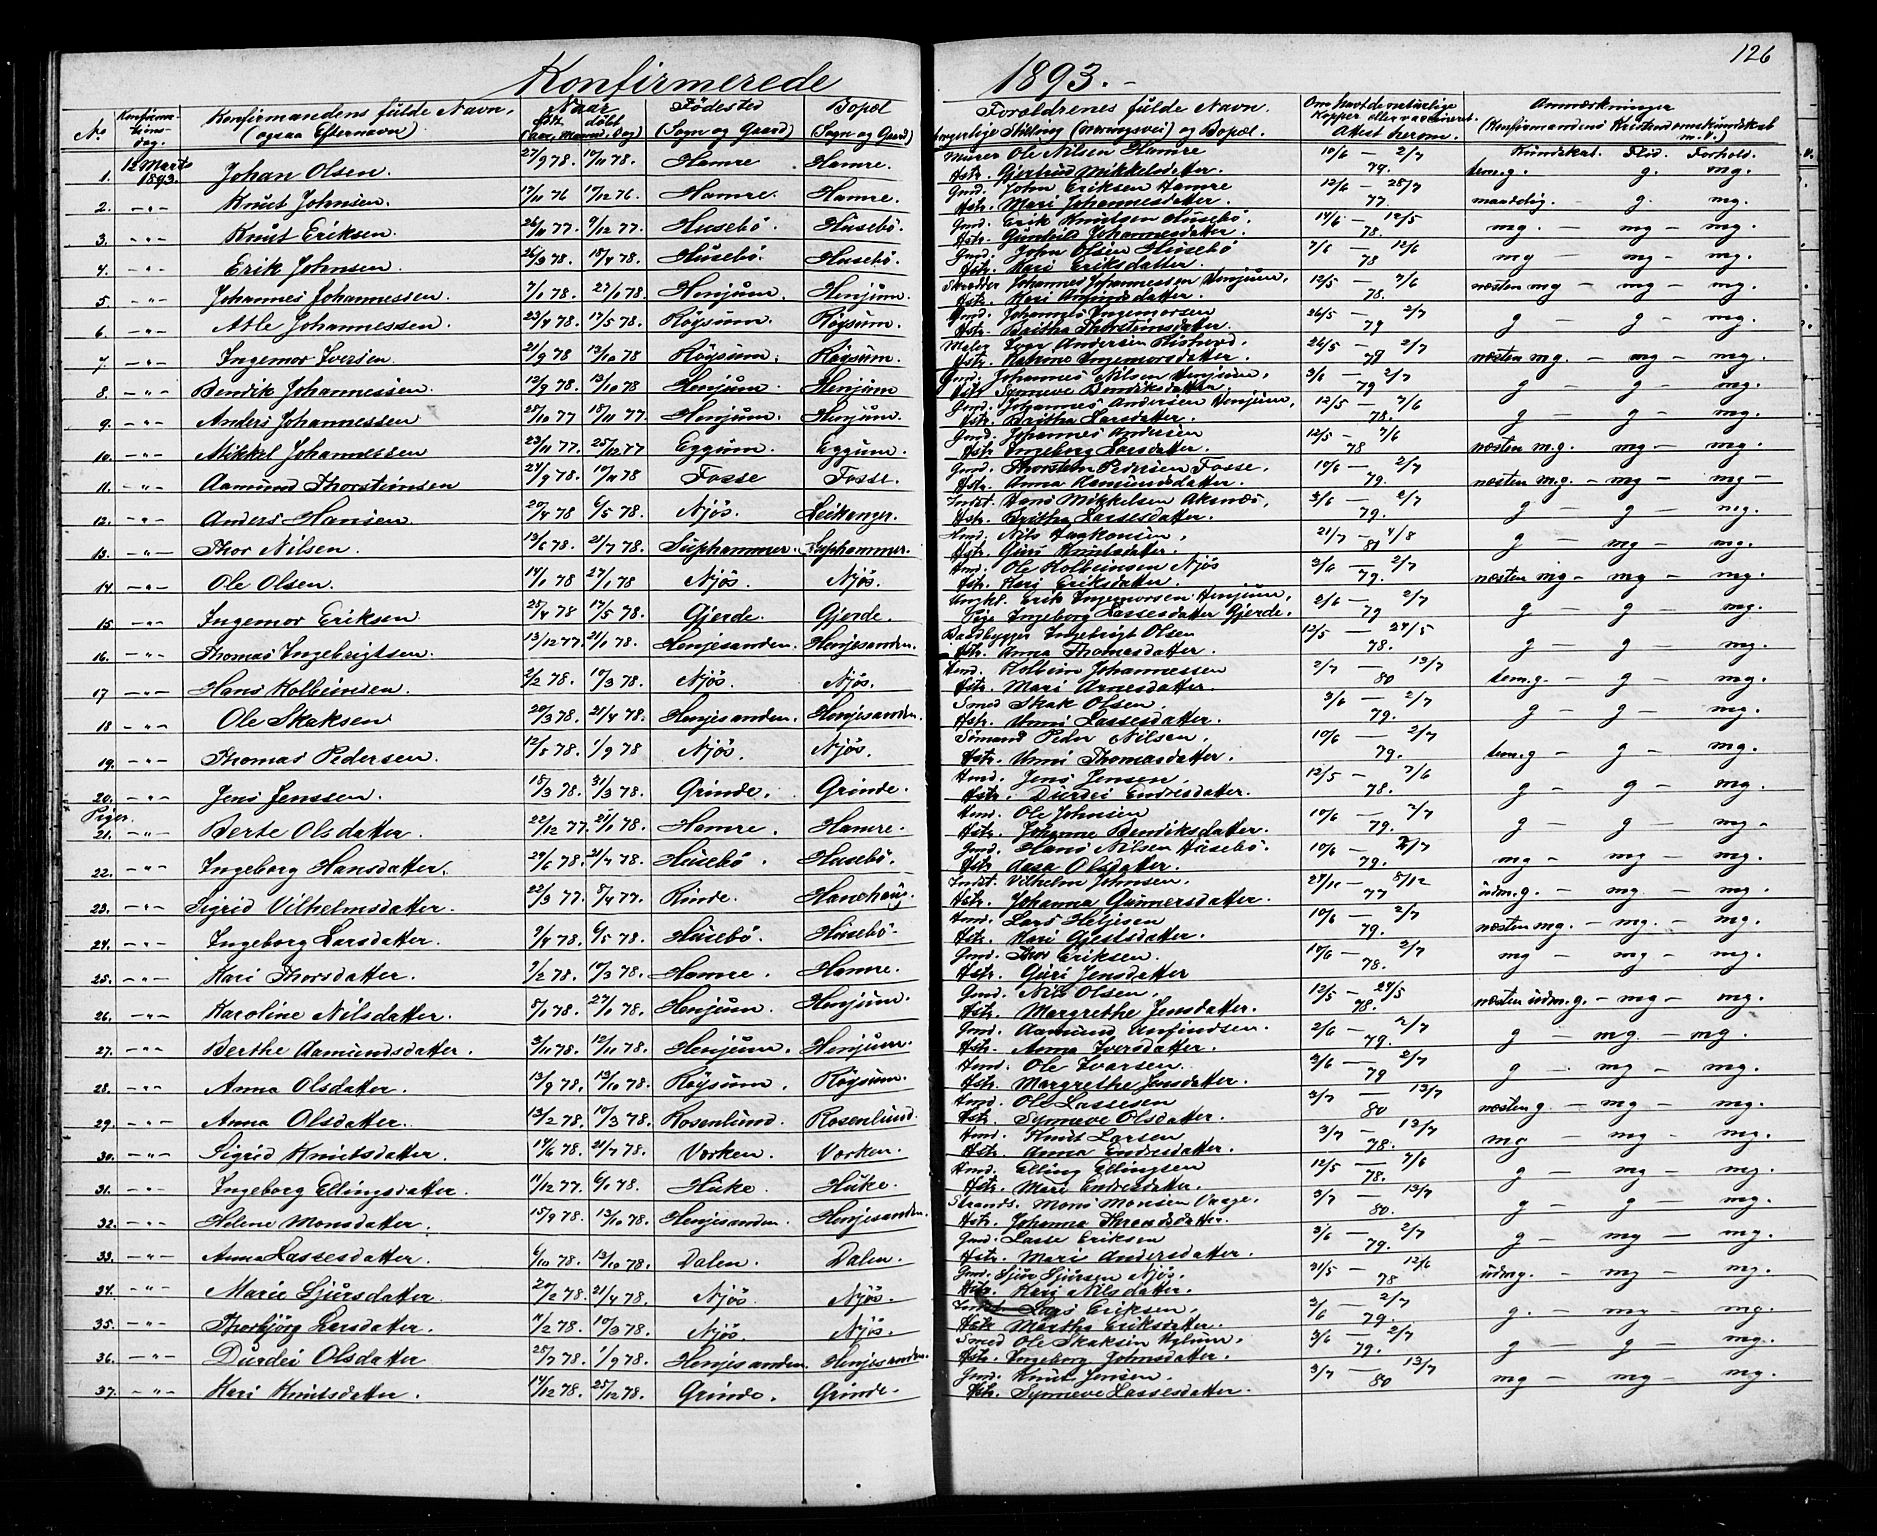 126
Konfirmerede 1893.
No. Konfirmationsdag. Konfirmandens fulde Navn, (ogsaa Efternavn) Naar født døbt (Aar, Maaned, Dag) Fødested (Sogn og Gaard) Bopæl (Sogn og Gaard) Forældrenes fulde Navn, borgerlige Stilling (næringsvei) og Bopæl. Om havt de naturlige Kopper eller vaccineret. Attest herom. Anmærkninger (Konfirmandens Kristendomskundskab m.v.)
Kundskab. Flid. Forhold.
1. 12 Marts 1893. Johan Olsen. 27/9 78. 10/11 78. Hamre. Hamre. Murer Ole Nilsen Hamre Hstr. Gjertrud Mikkelsdatter. 10/6 — 2/7 79. tem.g. g. mg.
2. —"— Knut Johnsen. 17/11 76 17/12 76. Hamre. Hamre. Gmd. John Eriksen Hamre Hstr. Mari Johannesdatter. 12/6 — 25/7 77. maadelig. - g. mg.
3. —"— Knut Eriksen. 26/11 77. 9/12 77. Husebö. Husebö. Gmd. Erik Knutsen Husebö. Hstr. Gunhild Johannesdatter. 14/6 — 12/5 78. mg. — mg — mg.
4. —"— Erik Johnsen. 26/3 78. 18/4 78. Husebö. Husebö. Gmd. John Olsen Husebö Hstr. Mari Eriksdatter. 7/6 — 12/6 78 mg — mg — mg.
5. —"— Johannes Johannessen. 7/1 78. 27/1 78. Henjum. Henjum. Skrædder Johannes Johannessen Henjum. Hstr. Kari Amundsdatter. 12/5 — 7/6 78. næsten mg — mg — mg.
6. —"— Atle Johannessen. 23/4 78. 17/5 78. Röysum. Röysum. Gmd. Johannes Ingemorsen Hstr. Britha Thorsteinsdatter. 26/5 — 2/7 79 g — g — mg.
7. —"— Ingemor Iversen. 21/9 78 13/10 78 Röysum. Röysum. Maler Iver Andersen Hstr. Katrine Ingemorsdatter. 26/5 — 2/7 79 næsten mg. — mg — mg.
8. —"— Bendik Johannessen. 12/9 78. 13/10 78 Henjum. Henjum Gmd. Johannes Nilsen Henjum. Hstr. Synneve Bendiksdatter. 3/6 — 2/7 79 g — g — mg.
9. —"— Anders Johannessen 25/10 77 18/11 77. Henjum. Henjum. Gmd. Johannes Andersen Henjum. Hstr. Britha Larsdatter. 12/5 — 7/6 78. g — g — mg.
10. —"— Mikkel Johannessen 23/11 77. 25/12 77 Eggum. Eggum. Gmd. Johannes Andersen Hstr Ingeborg Larsdatter. 12/5 — 7/6 78 næsten m.g. mg — mg.
11. —"— Aamund Thorsteinsen 24/9 78. 10/11 78 Fosse Fosse. Gmd. Thorstein Pedersen Fosse. Hstr. Anna Aamundsdatter. 10/6 — 2/7 79. næsten m.g. — mg — mg —
12. —"— Anders Hansen 20/4 78 6/5 78. Njös. Leikanger. Indst. Hans Mikkelsen Aksnes. Hstr. Britha Lassesdatter. 3/6 — 2/7 79. g — g — mg.
13. —"— Thor Nilsen. 13/6 78. 21/7 78. Suphammer. Suphammer. Hmd. Nils Haakonsen. Hstr. Guri Knutsdatter. 21/7 — 4/8 81 g — mg — mg.
14. —"— Ole Olsen. 14/1 78 27/1 78 Njös. Njös. Hmd. Ole Kolbeinsen Njös Hstr. Kari Eriksdatter. 3/6 — 2/7 79. næsten mg — mg — mg.
15. —"— Ingemor Eriksen 25/4 78 17/5 78. Gjerde. Gjerde. Ungkl. Erik Ingemorsen Henjum. Pige Ingeborg Lassesdatter Gjerde. 2/6 — 2/7 79 g — g — mg.
16. —"— Thomas Ingebrigtsen. 13/12 77. 21/1 78. Henjesanden. Henjesanden. Baadbygger Ingebrigt Olsen Hstr. Anna Thomasdatter. 12/5 — 24/5 78. g — g — mg.
17 —"— Hans Kolbeinsen. 2/2 78. 10/3 78. Njös. Njös. Hmd. Kolbein Johannessen Hstr. Mari Arnesdatter. 2/7 — 13/7 80 tem.g. — g — mg.
18 —"— Ole Skaksen 20/3 78. 21/4 78. Henjesanden. Henjesanden. Smed Skak Olsen. Hstr. Unni Lassesdatter. 3/6 — 2/7 79. g — g — mg.
19. —"— Thomas Pedersen. 12/8 78. 1/9 78 Njös. Njös. Sömand Peder Nilsen. Hstr. Unni Thomasdatter. 10/6 — 2/7 79. tem.g — g — mg.
20. —"— Jens Jenssen. 15/3 78. 31/3 78. Grinde. Grinde. Hmd. Jens Jensen. Hstr. Durdei Endresdatter. 12/5 — 7/6 78. g — g — mg
Piger.
21. —"— Berte Olsdatter. 22/12 77. 21/1 78. Hamre. Hamre. Hmd. Ole Johnsen Hstr. Johanne Bendiksdatter. 10/6 — 2/7 79. g — g — mg.
22. —"— Ingeborg Hansdatter. 29/6 78. 21/7 78. Husebö. Husebö. Gmd. Hans Nilsen Husebö. Hstr. Aasa Olsdatter. 10/6 — 2/7 79. mg — mg — mg.
23. —"— Sigrid Vilhelmsdatter. 22/3 77. 8/4 77. Rinde. Hanehaug. Indst. Vilhelm Johnsen. Hstr. Johanna Gunnersdatter. 24/11 — 8/12 77 udm.g. — mg. — mg.
24. —"— Ingeborg Larsdatter. 9/4 78. 6/5 78. Husebö. Husebö. Hmd. Lars Heljesen Hstr. Kari Gjestsdatter. 10/6 — 2/7 79. næsten mg. — mg — mg.
25. —"— Kari Thorsdatter. 7/2 78. 10/3 78. Hamre. Hamre. Gmd. Thor Eriksen. Hstr. Guri Jensdatter 10/6 — 2/7 78. mg — mg — mg.
26. —"— Karoline Nilsdatter. 8/1 78. 27/1 78. Henjum. Henjum. Gmd. Nils Olsen. Hstr. Margrethe Jensdatter. 12/5 — 24/5 78. næsten udm.g. — mg — mg.
27. —"— Berthe Aamundsdatter. 3/11 78. 12/11 78. Henjum. Henjum. Gmd. Aamund Anfindsen. Hstr. Anna Iversdatter. 2/6 — 2/7 79. g — mg — mg.
28. —"— Anna Olsdatter. 13/9 78. 13/10 78. Röysum. Röysum. Hmd. Ole Ivarsen. Hstr. Margrethe Jensdatter. 3/6 — 2/7 79 g — mg — mg.
29. —"— Anna Olsdatter. 13/2 78. 10/3 78. Rosenlund. Rosenlund. Hmd. Ole Lassesen Hstr. Synneve Olsdatter. 3/7 — 13/7 80 næsten g. — mg — mg.
30. —"— Sigrid Knutsdatter. 14/6 78. 21/7 78. Vorken. Vorken. Hmd. Knut Larsen Hstr. Anna Endresdatter. 3/7 — 13/7 78. mg — mg — mg.
31. —"— Ingeborg Ellingsdatter. 11/12 77. 6/1 78. Huke. Huke. Hmd. Elling Ellingsen Hstr. Mari Endresdatter. 12/5 — 7/6 78. g — mg — mg.
32. —"— Helene Monsdatter. 15/9 78. 13/10 78. Henjesanden. Henjesanden. Strands. Mons Monsen Vaage. Hstr. Johanna Throndsdatter. 3/7 — 13/7 80. g — g — mg.
33. —"— Anna Lassesdatter. 6/10 78. 13/10 78. Dalen. Dalen. Gmd. Lasse Eriksen Hstr. Mari Andersdatter. 3/6 — 2/7 79. g — mg — mg.
34. —"— Marie Sjursdatter. 20/2 78. 21/4 78. Njös. Njös. Gmd. Sjur Sjursen Njös. Hstr. Kari Nilsdatter. 31/5 — 12/6 78 udmg. — mg — mg.
35. —"— Thorbjörg Larsdatter. 11/2 78. 10/3 78. Njös. Njös. Lars Eriksen. Hstr Martha Eriksdatter. 3/6 — 2/7 79. g. — mg — mg.
36. —"— Durdei Olsdatter 25/7 78. 1/9 78. Henjesanden. Henjesanden. Smed Ole Skaksen Hstr. Ingeborg Johnsdatter. 3/6 — 2/7 79. g — g — mg.
37. —"— Kari Knutsdatter. 14/12 78. 25/12 78. Grinde. Grinde. Gmd. Knut Jensen. Hstr. Synneve Lassesdatter. 3/7 — 13/7 80 mg — mg — mg.